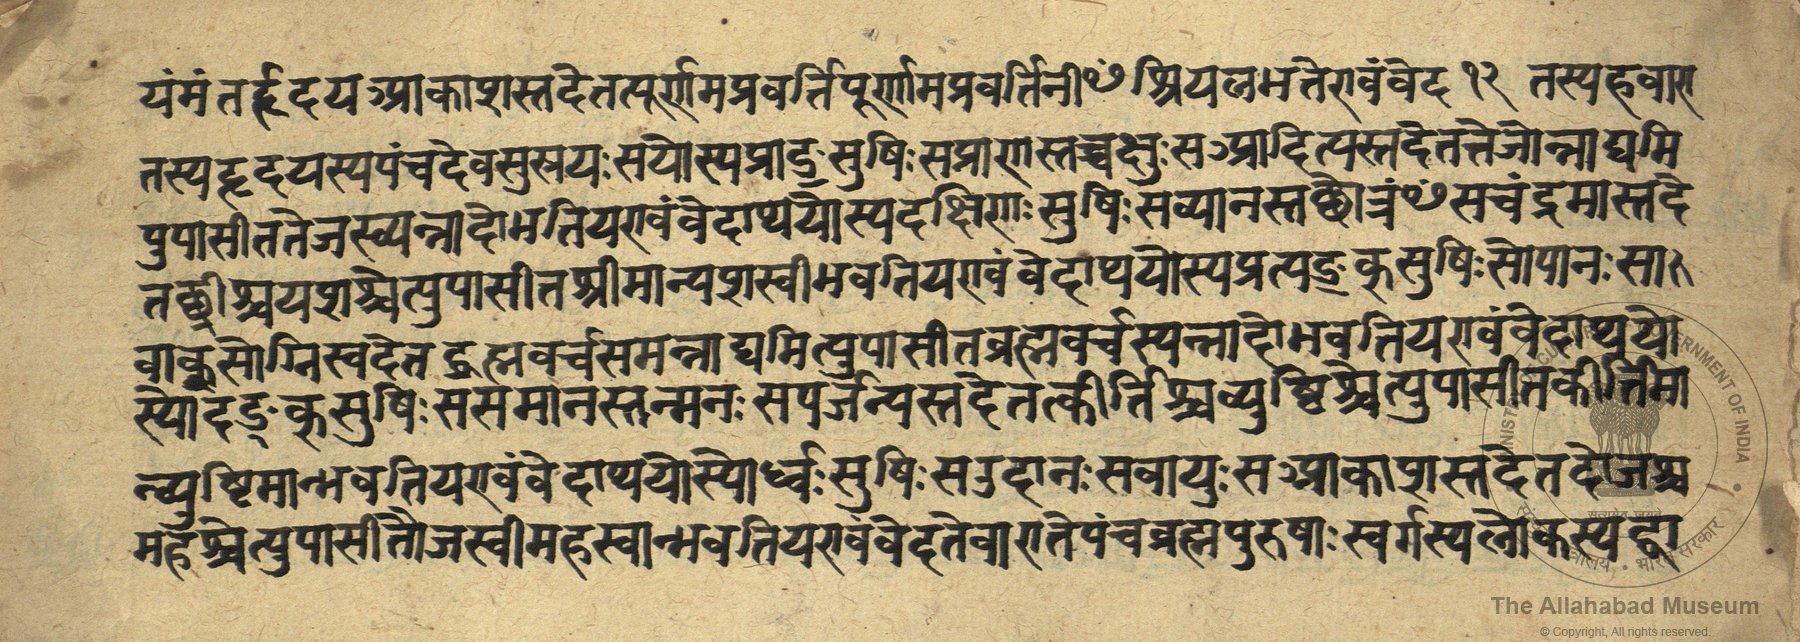 यंमंतर्हृदयऽआकाशस्तदेतत्पूर्णमप्रवर्त्तिपूर्णामप्रवर्त्तिनीꣳश्रियलभतेएवंवेद १२ तस्यहवाए
तस्यहृदयस्यपंचदेवसुस्रयःसयोस्यप्राङ्सुषिःसप्राणस्तच्चक्षुःसऽआदित्यस्तदेतत्तेजोन्नाद्यमि
पुपासीततेजस्व्यन्नादोभतियएवंवेदाथयोस्यदक्षिणःसुषिःसव्यानस्तच्छ्रोत्रंꣳसचंद्रमास्तदे
तच्छ्रीश्चयशश्चेत्युपासीतश्रीमान्यशस्वीभवतियएवंवेदाथयोस्यप्रत्यङ्कसुषिःसोपानःसा
वाक्सोग्निस्तदेतद्ब्रह्मवर्चसमन्नाद्यमित्युपासीतब्रह्मवर्चस्यन्नादोभवतियएवंवेदाथयो
स्योदङ्कसुषिःससमानस्तन्मनःसपर्जन्यस्तदेतत्कीर्त्तिश्चव्युष्टिश्चेत्युपासीतकीर्त्तिमा
न्व्युष्टिमान्भवतियएवंवेदाथयोस्योर्ध्वःसुषिःसउदानःसवायुःसऽआकाशस्तदेतदोजश्च
महश्चेत्युपासीतौजस्वीमहस्वान्भवतियएवंवेदतेवाएतेपंचब्रह्मपुरुषाःस्वर्गस्यलोकस्यद्वा
The Allahabad Museum
© Copyright, All rights reserved.